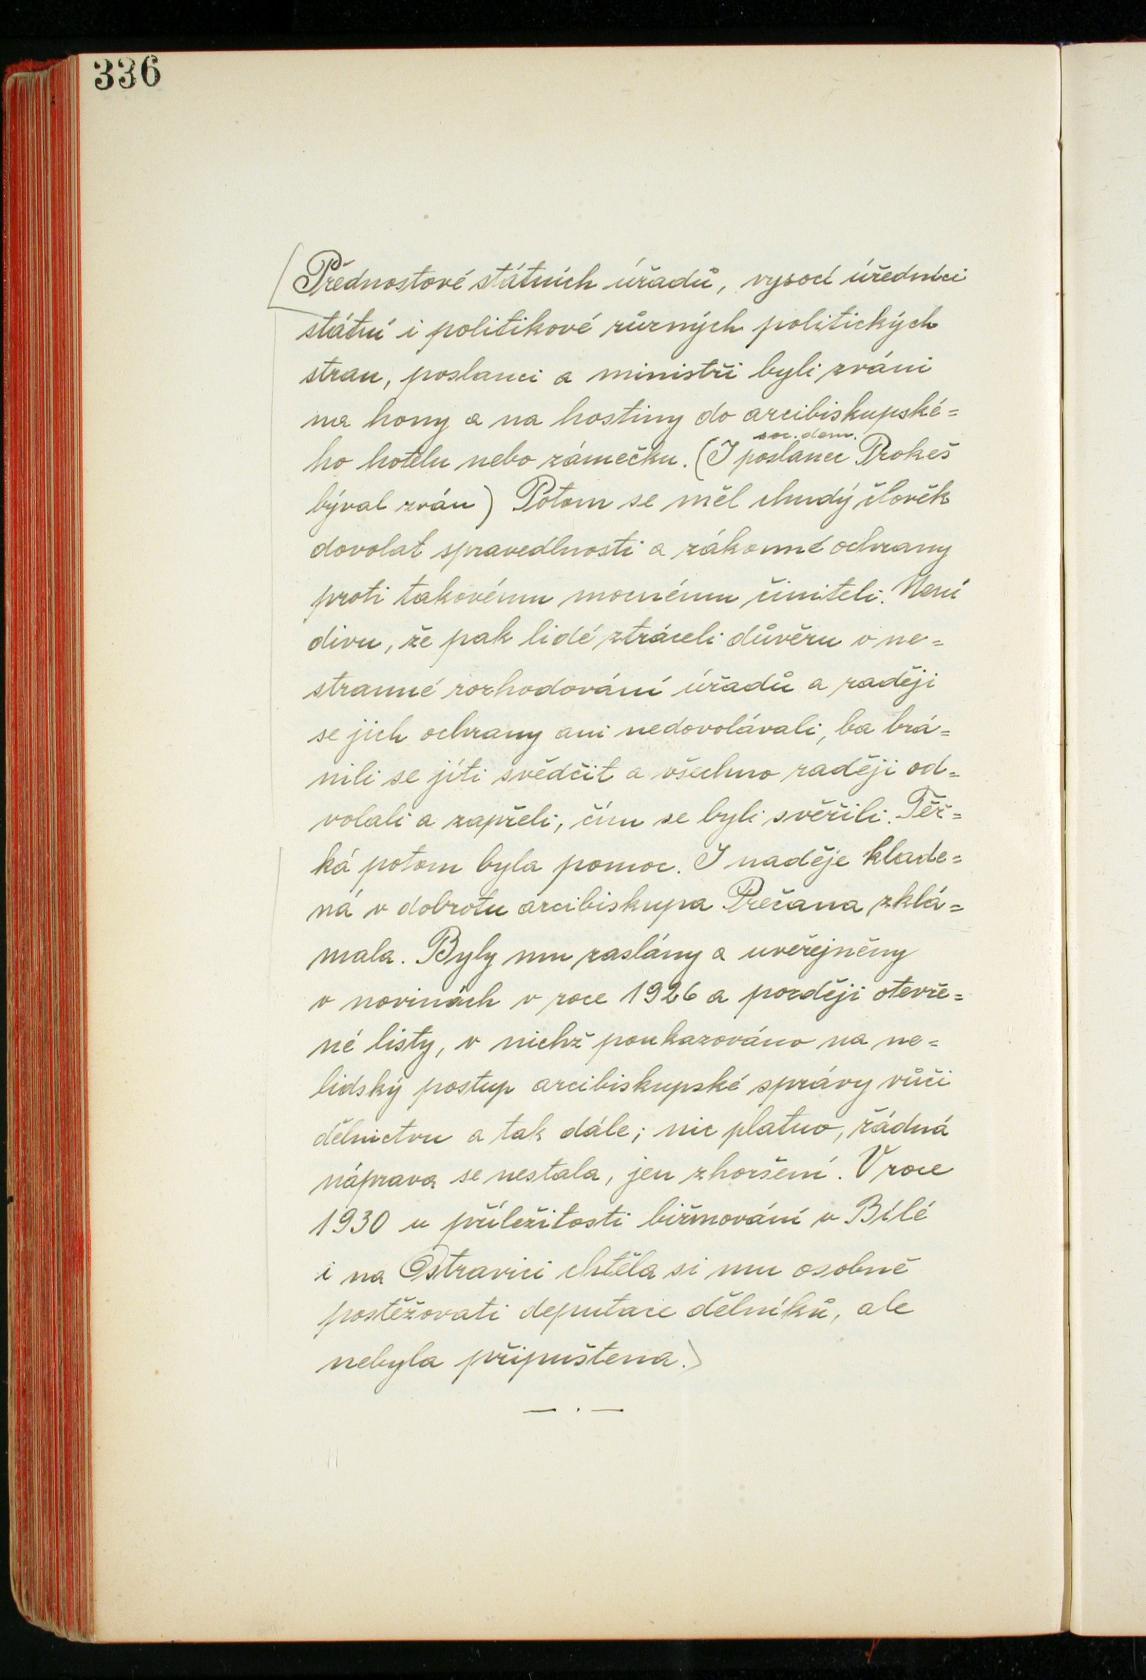 336
Přednostové státních úřadů, vysocí úředníci
státní i politikové různých politických
stran, poslanci a ministři byli zváni
na hony a na hostiny do arcibiskupské=
soc. dem.
ho hotelu nebo zámečku. (I poslanec Prokeš
býval zván) Potom se měl chudý člověk
dovolat spravedlnosti a zákonné ochrany
proti takovému mocnému činiteli. Není
divu, že pak lidé ztráceli důvěru v ne=
stranné rozhodování úřadů a raději
se jich ochrany ani nedovolávali, ba brá=
nili se jíti svědčit a všechno raději od=
volali a zapřeli, čím se byli svěřili. Těž=
ká potom byla pomoc. I naděje klade=
ná v dobrotu arcibiskupa Prečana zkla=
mala. Byly mu zaslány a uveřejněny
v novinách v roce 1926 a později otevře=
né listy, v nichž poukazováno na ne=
lidský postup arcibiskupské správy vůči
dělnictvu a tak dále; nic platno, žádná
náprava se nestala, jen zhoršení. V roce
1930 u příležitosti biřmování v Bílé
i na Ostravici chtěla si mu osobně
postěžovati deputace dělníků, ale
nebyla připuštena.)
— . —